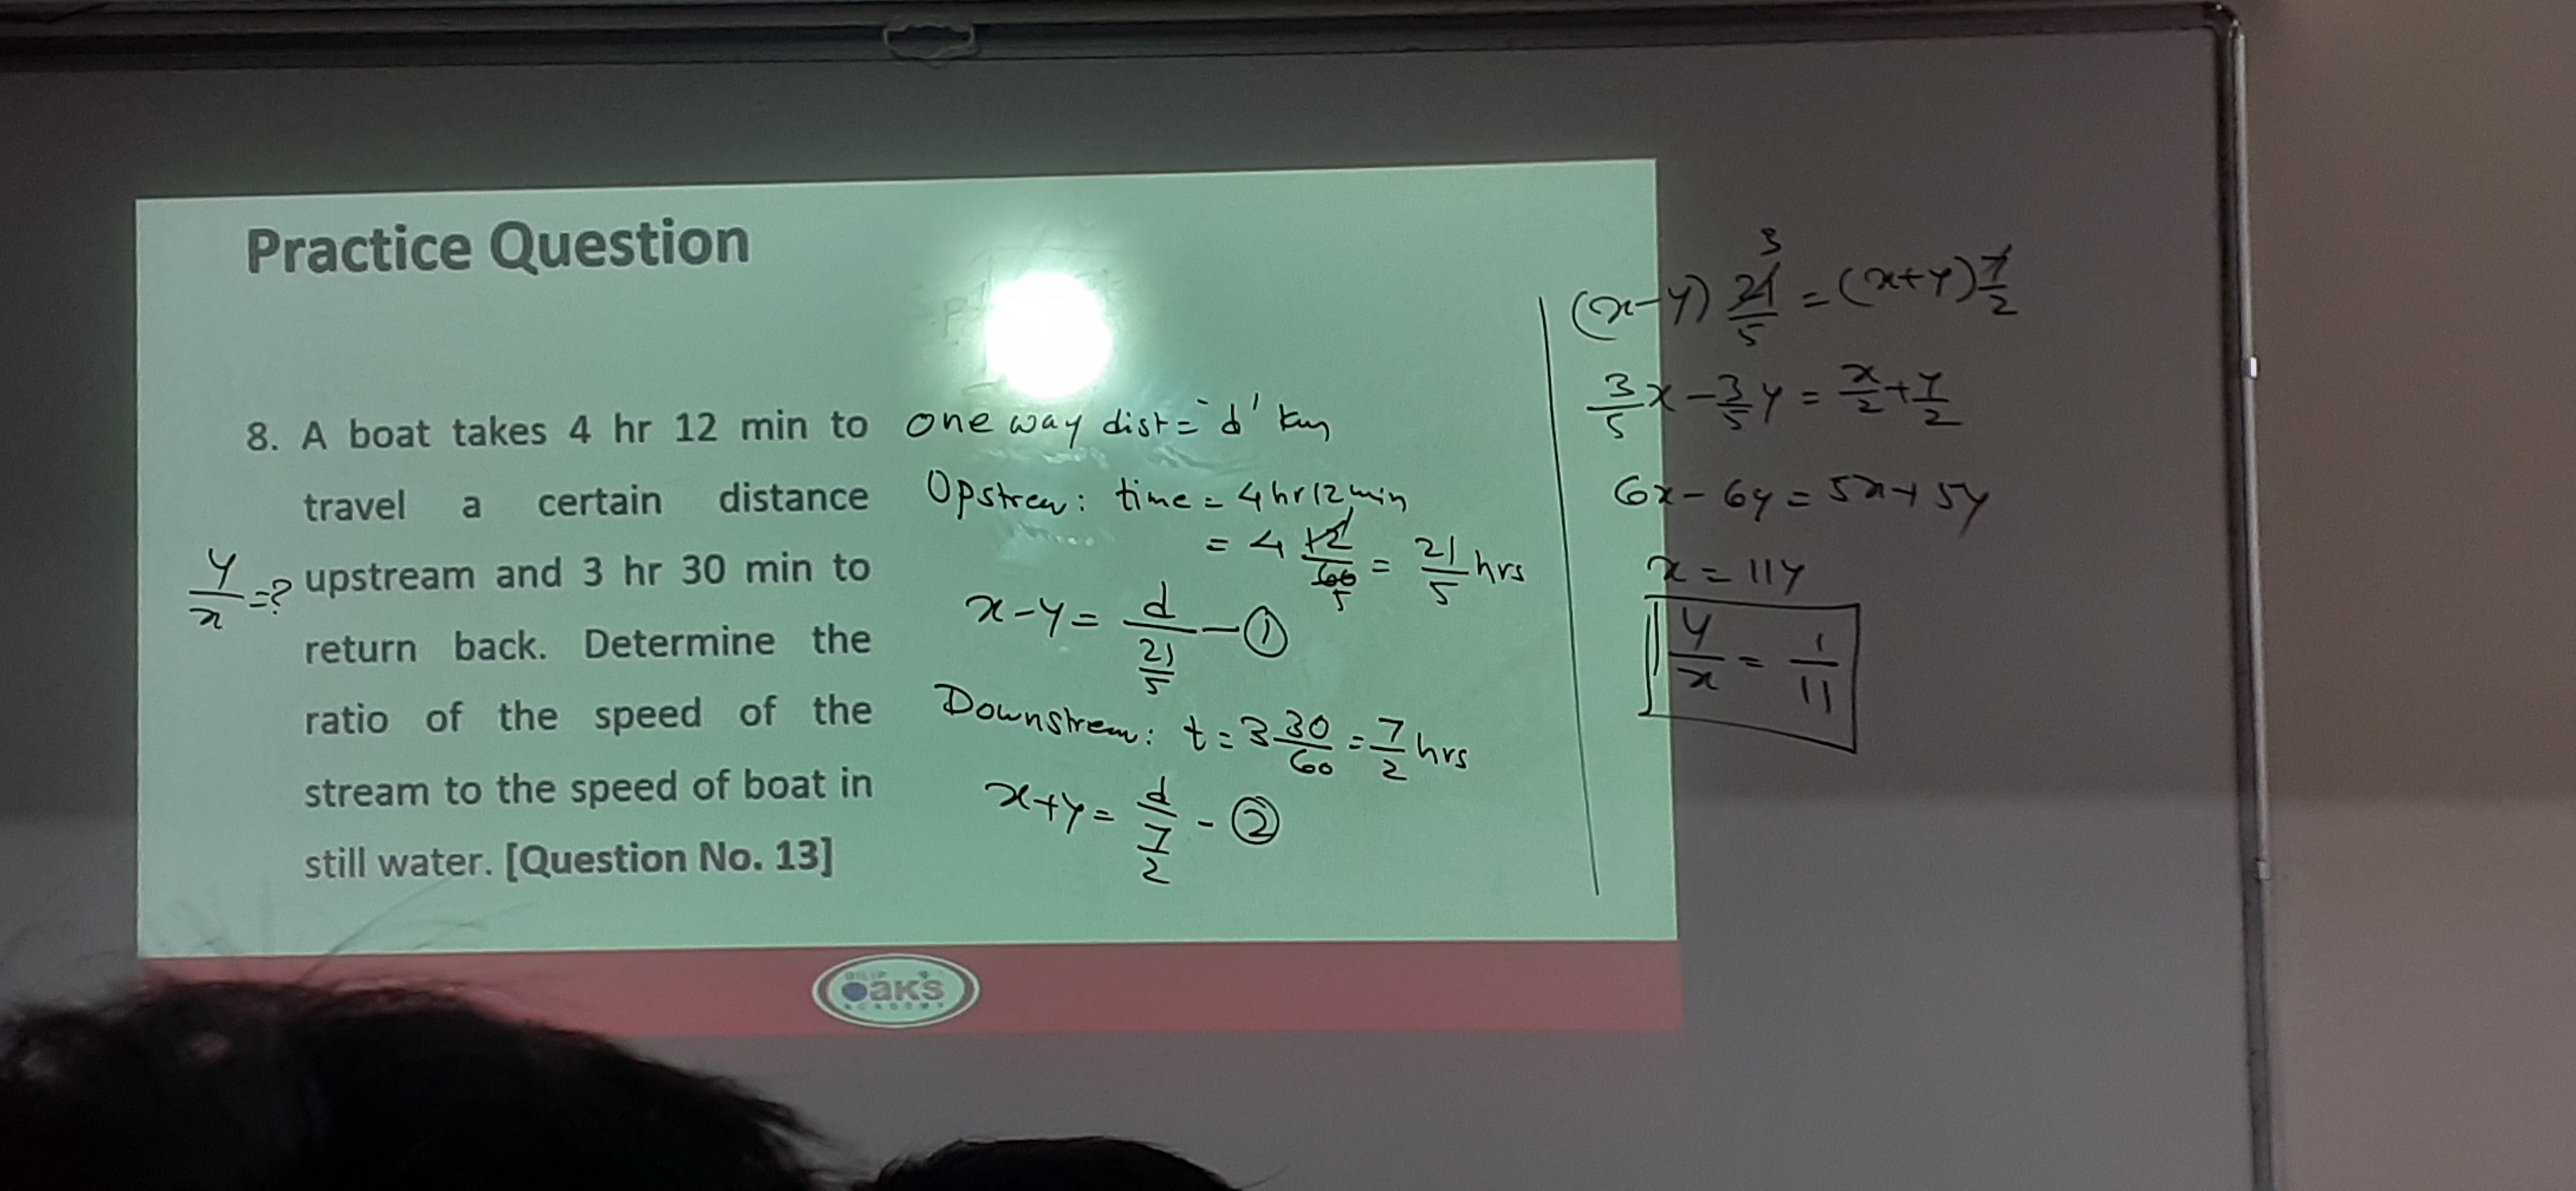 Practice Question
8. A boat takes 4 hr 12 min to
travel a certain distance
upstream and 3 hr 30 min to
return back. Determine the
ratio of the speed of the
stream to the speed of boat in
still water. [Question No. 13]
y/x = ?
one way dist = 'd' km
Upstream: time = 4 hr 12 min
= 4 12/60 5 = 21/5 hrs
x - y = d/(21/5) - ①
Downstream: t = 3 30/60 = 7/2 hrs
x + y = d/(7/2) - ②
3
(x - y) 21/5 = (x + y) 7/2
3/5 x - 3/5 y = x/2 + y/2
6x - 6y = 5x + 5y
x = 11y
y/x = 1/11
DILIP
OAKS
ACADEMY